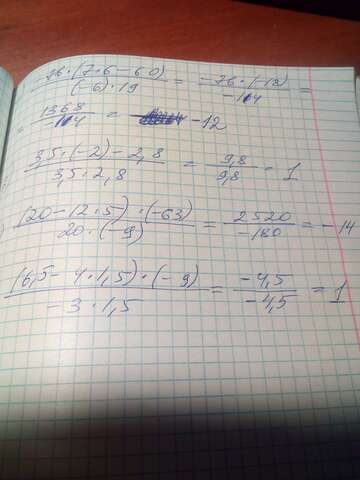 -76·(7·6-60) / (-6)·19 = -76·(-18) / -114 =
= 1368 / -114 = -12
3,5·(-2)-2,8 / 3,5·2,8 = 9,8 / 9,8 = 1
(20-12·5)·(-63) / 20·(-9) = 2520 / -180 = -14
(6,5-4·1,5)·(-9) / -3·1,5 = -4,5 / -4,5 = 1